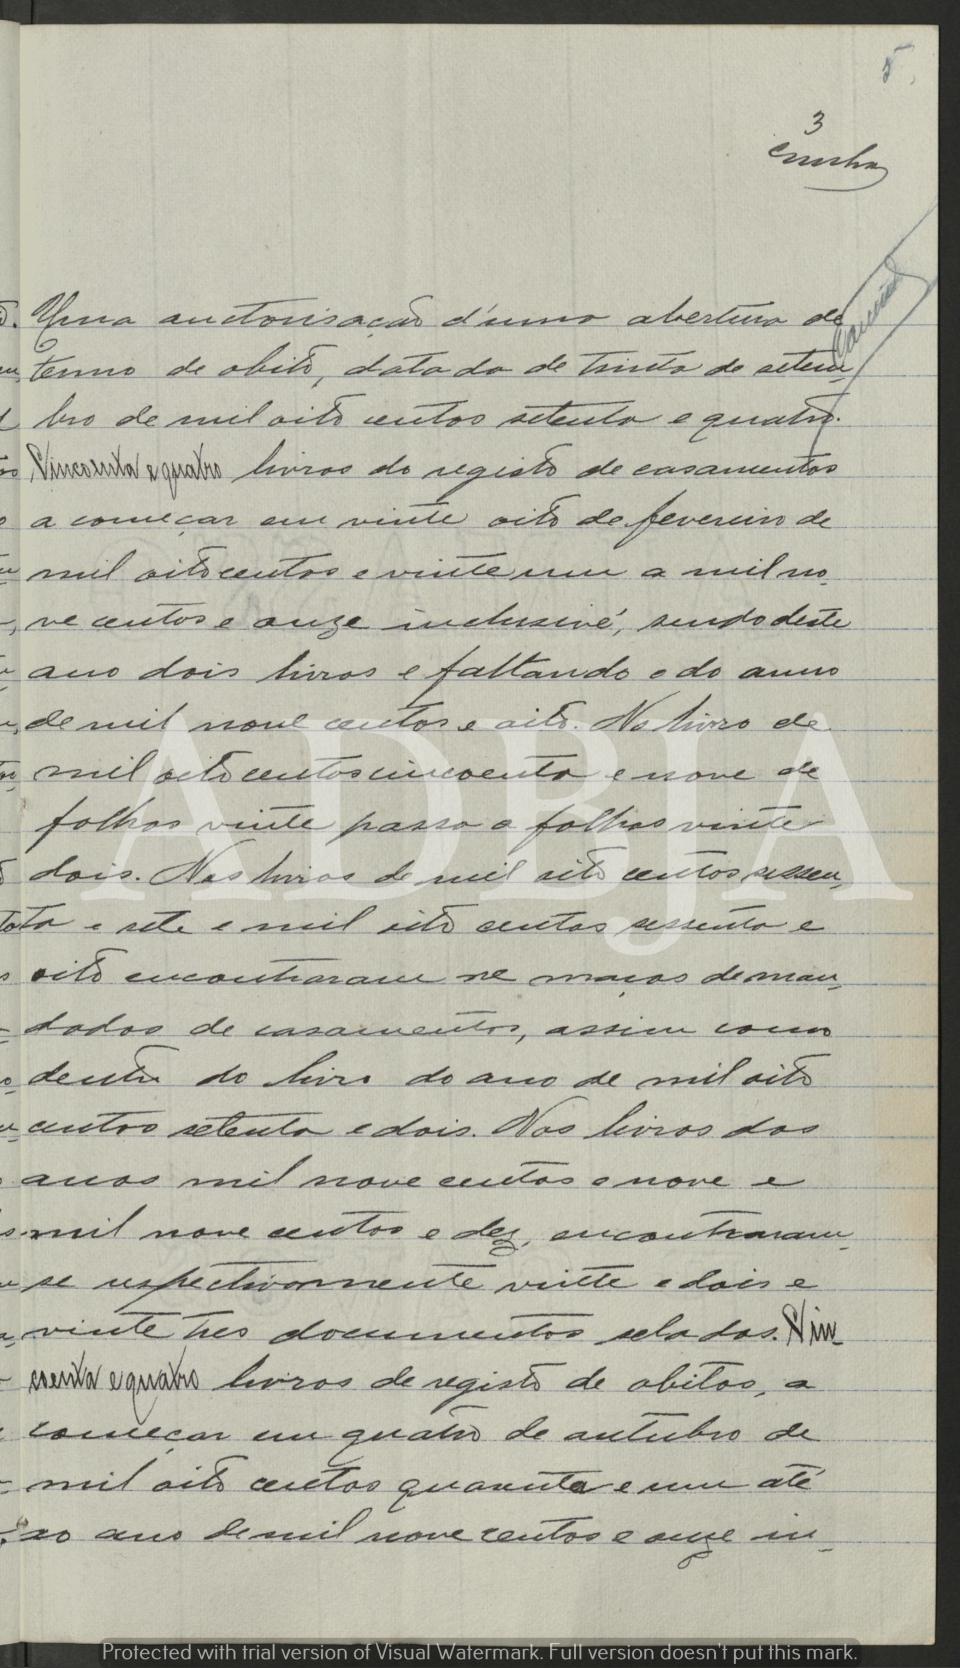 5
3
Cunha
Uma auctorisação d'uma abertura de
termo de obito, datada de trinta de setem-
bro de mil oito centos setenta e quatro.
Cincoenta e quatro livros do registo de casamentos
a começar em vinte oito de fevereiro de
mil oitocentos e vinte um a mil no-
ve centos e onze inclusivé, sendo deste
ano dois livros e faltando o do anno
de mil nove centos e oito. No livro de
mil oitocentos cincoenta e nove de
folhas vinte passa a folhas vinte
dois. Nos livros de mil oito centos sessen-
ta e sete e mil oito centos sessenta e
oito encontraram se maços de man-
dados de casamentos, assim como
dentro do livro do ano de mil oito
centos setenta e dois. Nos livros dos
anos mil nove centos e nove e
mil nove centos e dez, encontraram-
se respectivamente vinte e dois e
vinte tres documentos selados. Cin-
coenta e quatro livros de registo de obitos, a
começar em quatro de outubro de
mil oito centos quarenta e um até
ao ano de mil nove centos e onze in-
ADBJA
Protected with trial version of Visual Watermark. Full version doesn't put this mark.